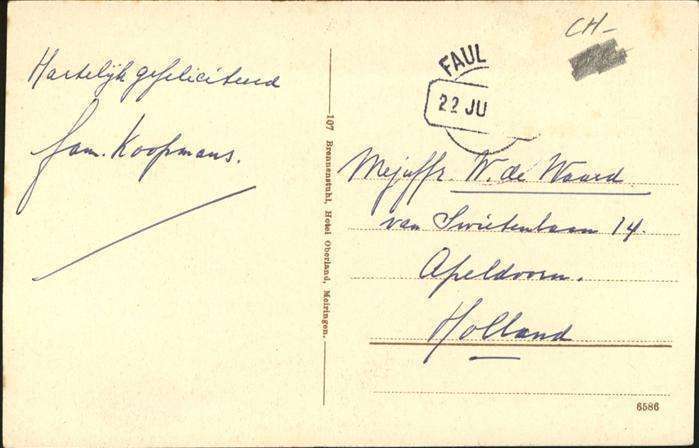 CH-
Hartelijk gefeliciteerd
fam. Koopmans.
FAUL
22 JU
107 Brennenstuhl, Hotel Oberland, Meiringen.
Mejuffr. W. de Waard
van Swietenlaan 14.
Apeldoorn.
Holland
6586